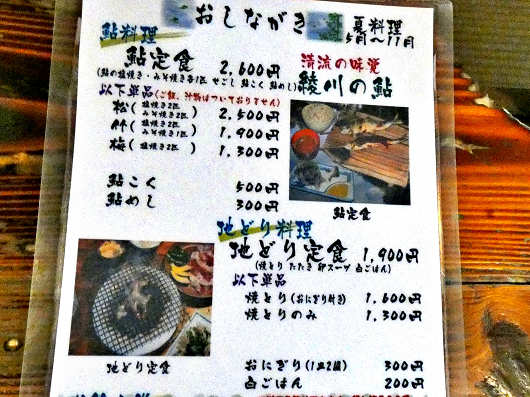 おしながき
夏料理
5月～11月
鮎料理
鮎定食 2,600円
(鮎の塩焼き・みそ焼き各1匹 せごし 鮎こく 鮎めし)
以下単品(ご飯、汁物はついておりません)
松(塩焼き2匹 みそ焼き2匹) 2,500円
竹(塩焼き2匹 みそ焼き1匹) 1,900円
梅(塩焼き2匹) 1,300円
鮎こく 500円
鮎めし 300円
清流の味覚
綾川の鮎
鮎定食
地どり料理
地どり定食 1,900円
(焼とり たたき 卵スープ 白ごはん)
以下単品
焼とり(おにぎり付き) 1,600円
焼とりのみ 1,300円
おにぎり(1皿2個) 300円
白ごはん 200円
地どり定食